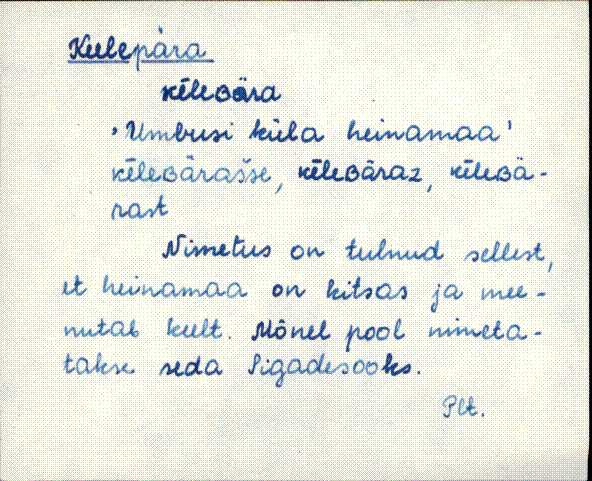 Keelepära
kēleʙära
'Umbusi küla heinamaa'
kēleʙärašse, kēleʙäraz, kēleʙä-
rast
Nimetus on tulnud sellest,
et heinamaa on kitsas ja mee-
nutab keelt. Mõnel pool nimeta-
takse seda Sigadesooks.
Plt.